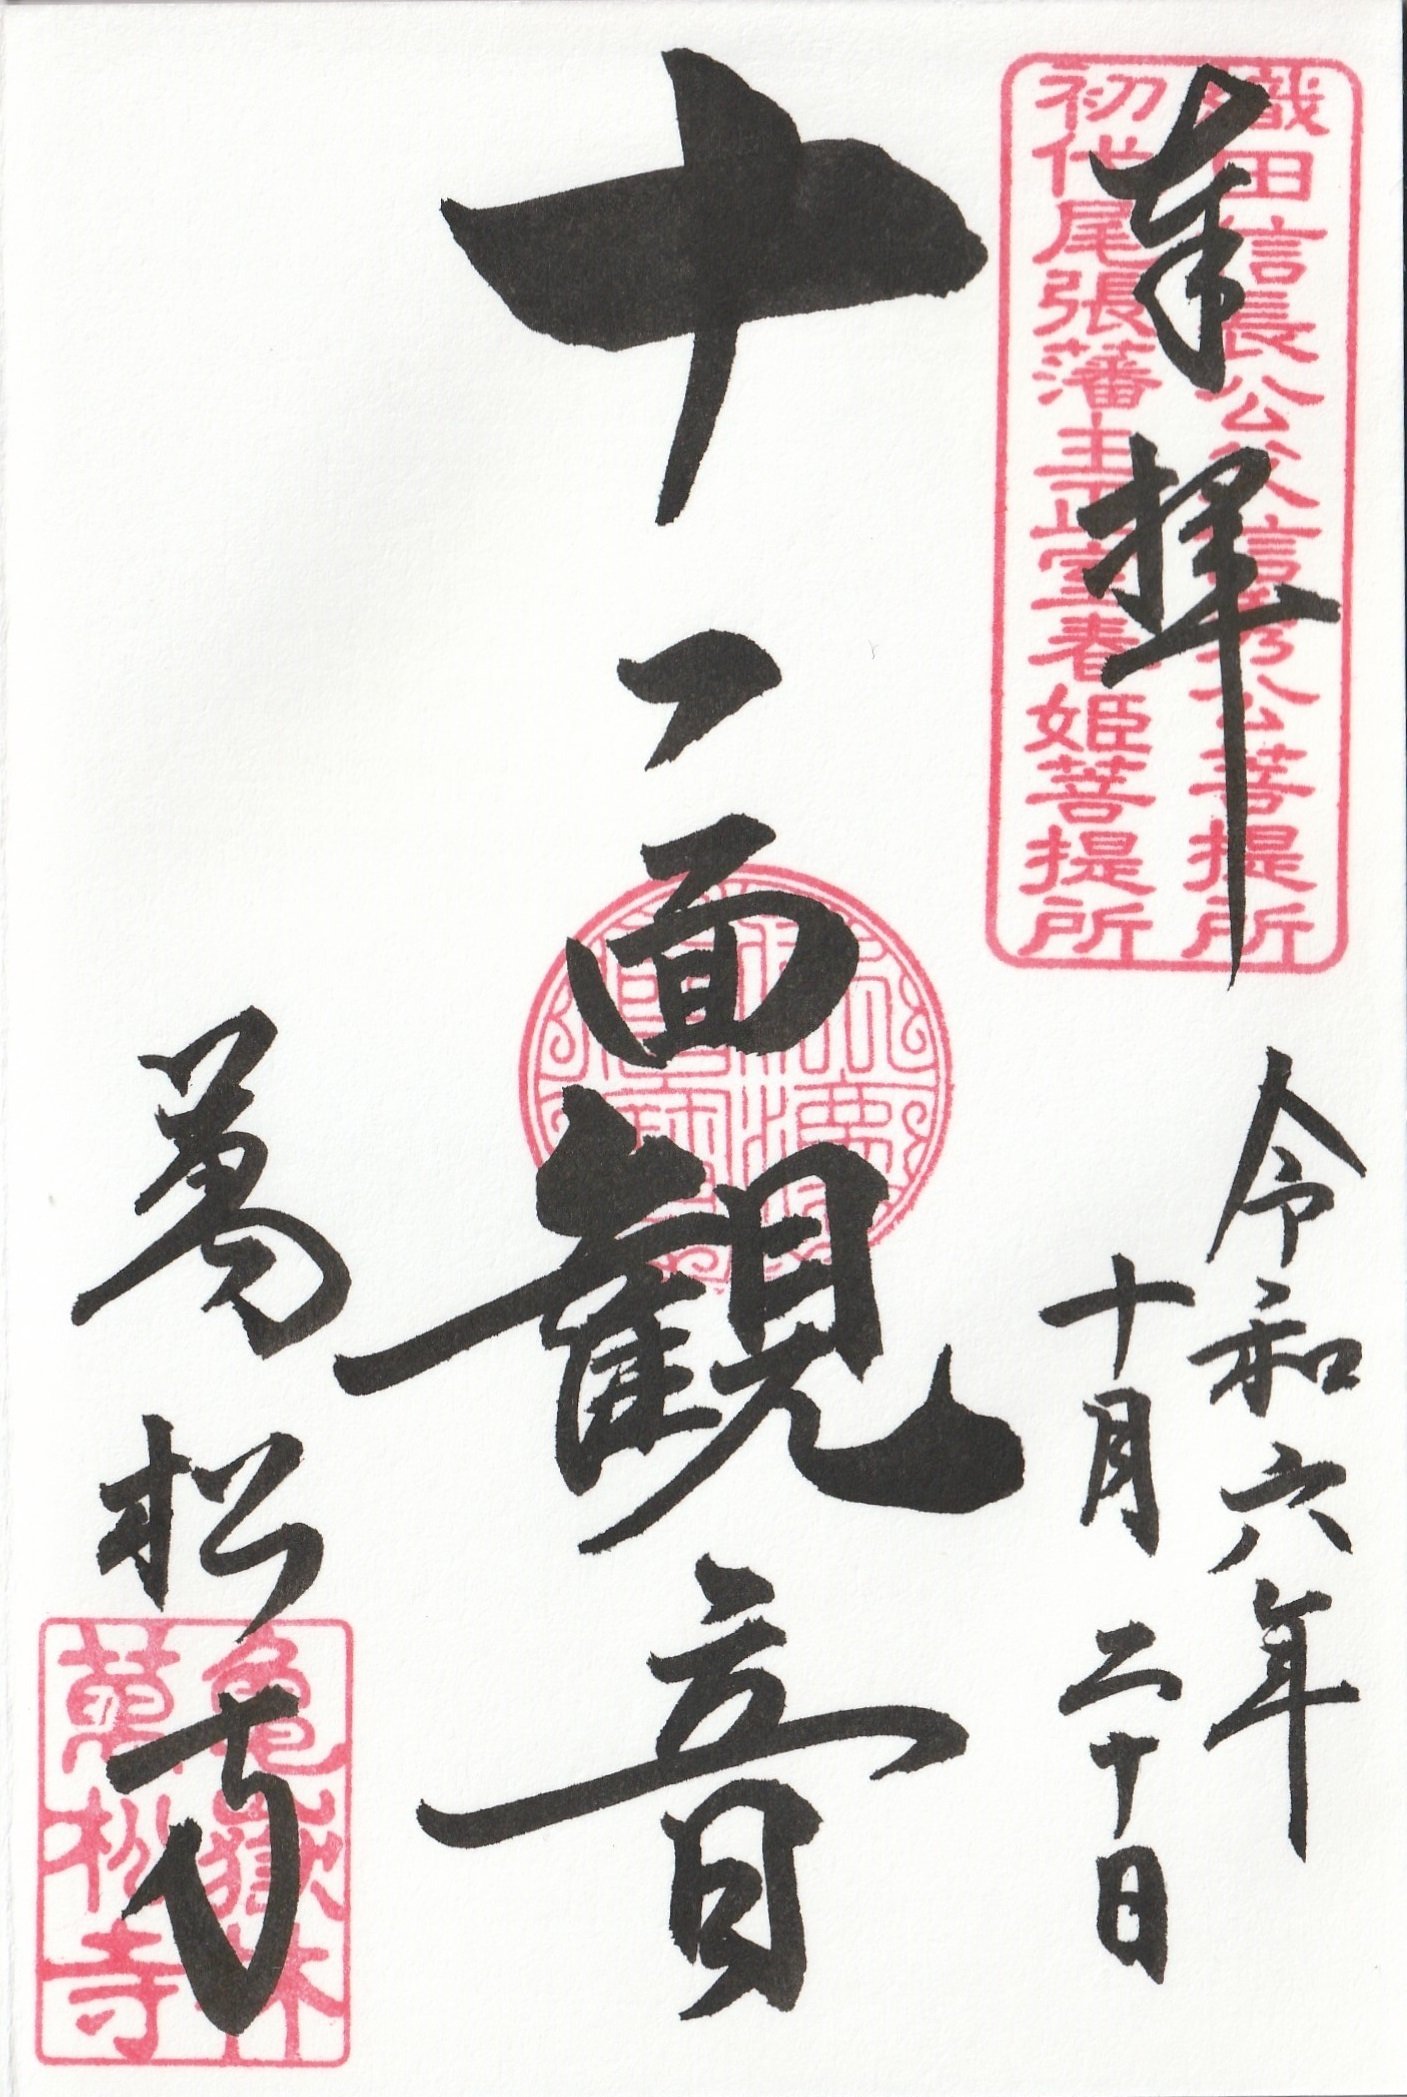 奉拝
織田信長公父信秀公菩提所
初代尾張藩主正室春姫菩提所
令和六年
十月二十日
十一面観音
萬松寺
亀嶽林
萬松寺